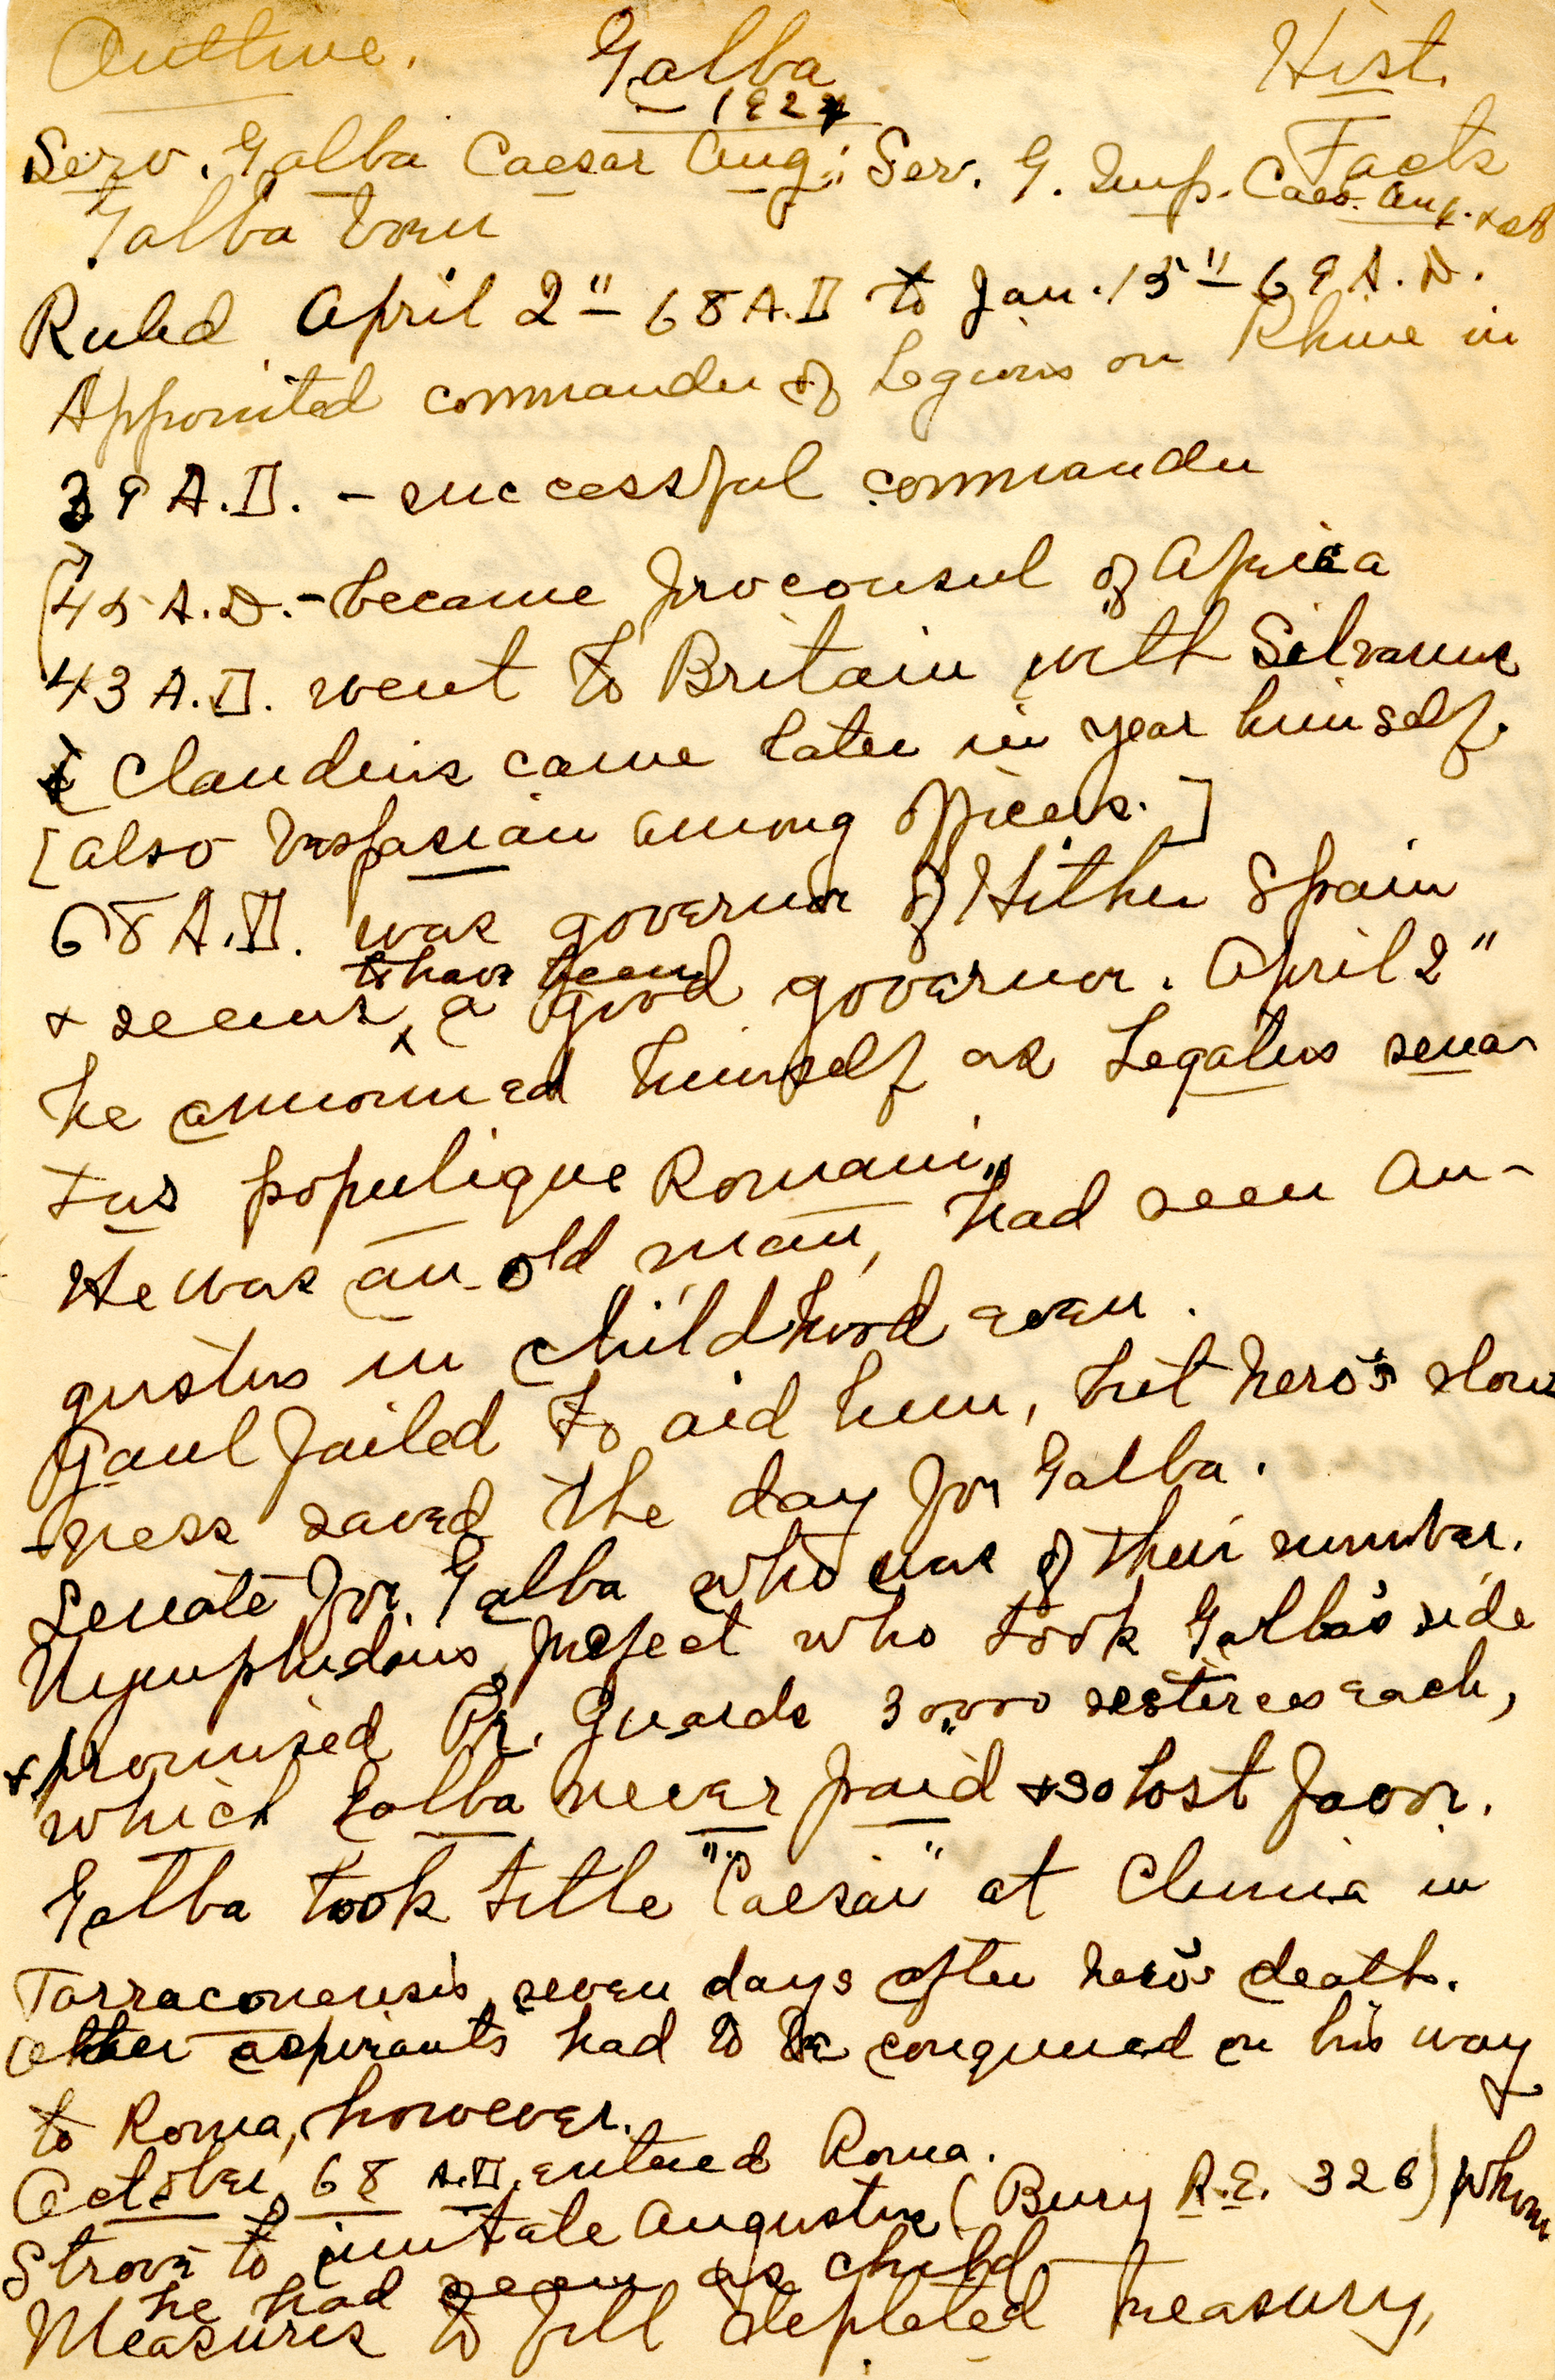 Outline. Galba Hist.
— 1924 Facts
Serv. Galba Caesar Aug.; Ser. G. Imp. Caes. Aug.
Galba
Ruled April 2" – 68 A.D to Jan. 15" – 69 A.D.
Appointed commander of Legions on Rhine in
39 A.D. – successful commander
45 A.D. – became proconsul of Africa
43 A.D. went to Britain with Silvanus
[Claudius came later in year himself.
[also Vespasian among officers.]
68 A.D. was governor of Hither Spain
to have been
& seems x a good governor. April 2"
he announced himself as Legatus sena-
tus populique Romani"
He was an old man, had seen Au-
gustus in childhood even.
Gaul failed to aid him, but Nero's slow
-ness saved the day for Galba.
Senate for Galba who was of their number.
Nymphidius, prefect who took Galba's side
& promised Pr. Guards 30,000 sesterces each,
which Galba never paid & so lost favor.
Galba took title "Caesar" at Clunia in
Tarraconensis, seven days after Nero's death.
Other aspirants had to be conquered on his way
to Roma, however.
October, 68 A.D. entered Roma.
Strove to imitate Augustus (Bury R.E. 328) whom
he had seen as child
Measures to fill depleted treasury,